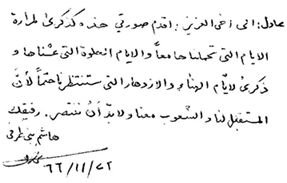 عادل: الى أخي العزيز: اقدم صورتي هذه كذكرى لمرارة
الايام التي تحملناها معاً والايام الحلوة التي عشناها و
ذكرى لأيام الهناء والازدهار التي ستنتظرنا حتماً لأن
المستقبل لنا والشعوب معنا ولا بد أن ننتصر. رفيقك
هاشم بني طرفي
٦٦/١١/٢٢